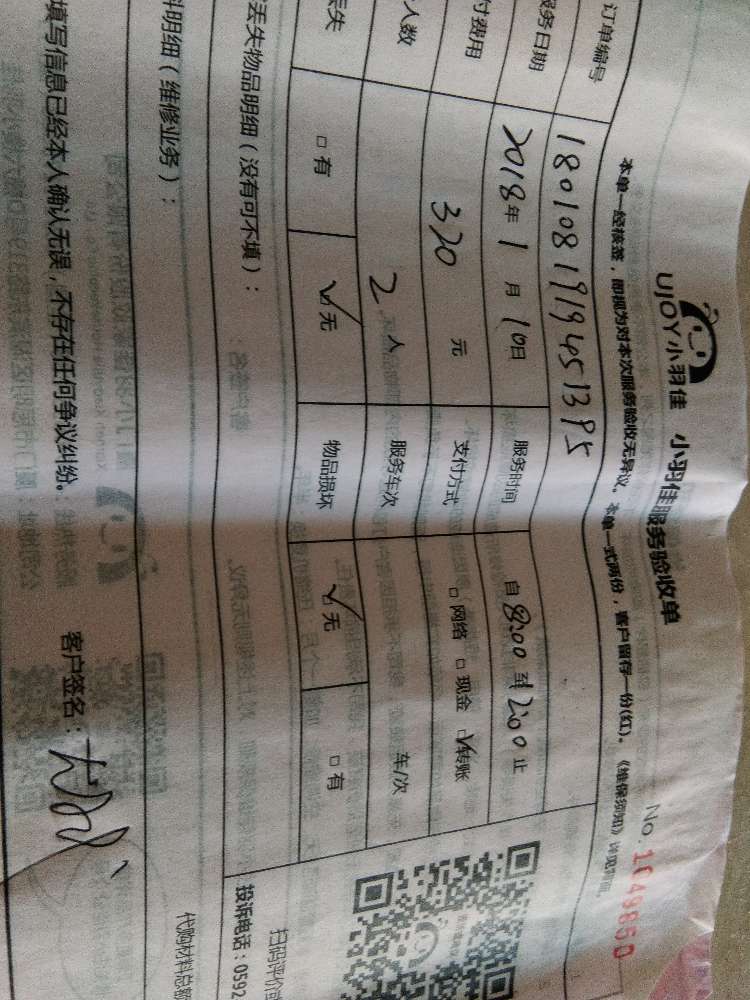 UJOY小羽佳 小羽佳服务验收单
No.1049850
本单一经核签，即视为对本次服务验收无异议。本单一式两份，客户留存一份(红)。《维保须知》详见背面。
订单编号 1801081919451395
服务日期 2018年1月10日 服务时间 自8:00至12:00止
付费用 320元 支付方式 □网络 □现金 ☑转账
人数 2人 服务车次 车/次
丢失 □有 ☑无 物品损坏 ☑无 □有
丢失物品明细（没有可不填）：
料明细（维修业务）：
填写信息已经本人确认无误，不存在任何争议纠纷。 客户签名：
扫码评价
投诉电话：0592
代购材料总额